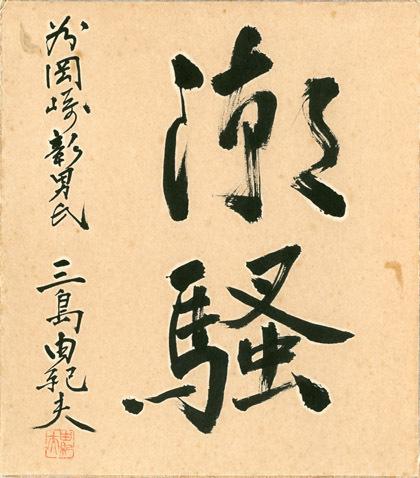 潮騒
為岡崎彰男氏 三島由紀夫